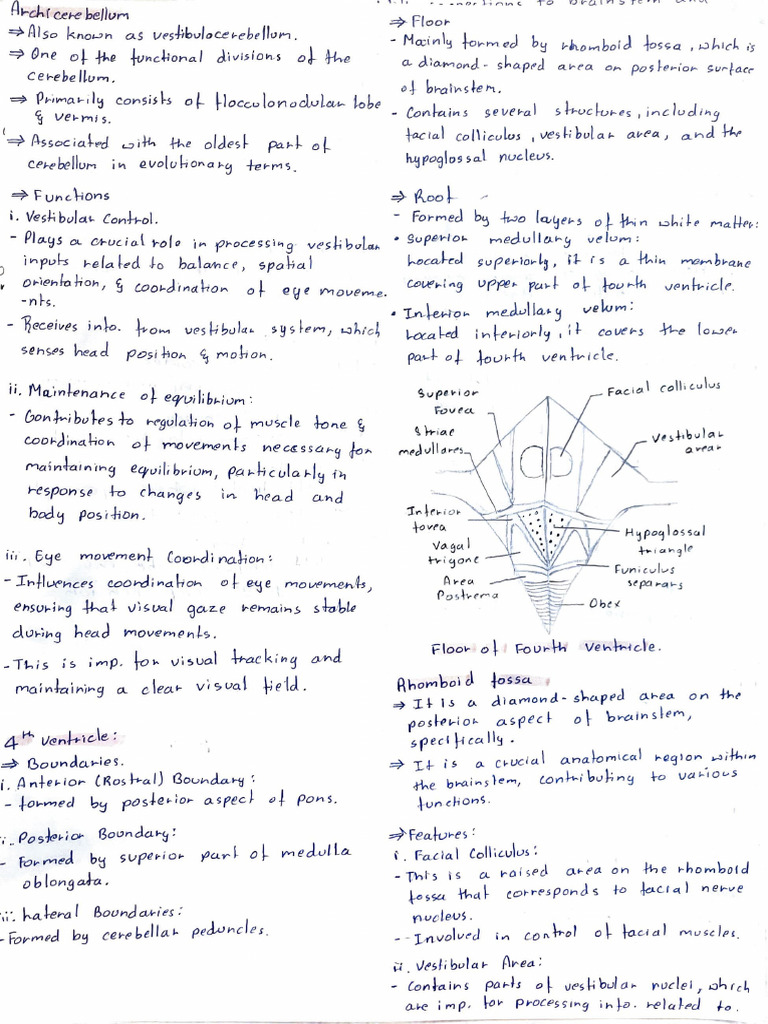 Archicerebellum
⇒ Also known as vestibulocerebellum.
⇒ One of the functional divisions of the
cerebellum.
⇒ Primarily consists of flocculonodular lobe
& vermis.
⇒ Associated with the oldest part of
cerebellum in evolutionary terms.
⇒ Functions
i. Vestibular Control.
- Plays a crucial role in processing vestibular
inputs related to balance, spatial
orientation, & coordination of eye moveme.
-nts.
- Receives info. from vestibular system, which
senses head position & motion.
ii. Maintenance of equilibrium:
- Contributes to regulation of muscle tone &
coordination of movements necessary for
maintaining equilibrium, particularly in
response to changes in head and
body position.
iii. Eye movement Coordination:
- Influences coordination of eye movements,
ensuring that visual gaze remains stable
during head movements.
- This is imp. for visual tracking and
maintaining a clear visual field.
4th ventricle:
⇒ Boundaries.
i. Anterior (Rostral) Boundary:
- formed by posterior aspect of pons.
ii. Posterior Boundary:
- Formed by superior part of medulla
oblongata.
iii. Lateral Boundaries:
- Formed by cerebellar peduncles.
to brainstem and
⇒ Floor
- Mainly formed by rhomboid fossa, which is
a diamond-shaped area on posterior surface
of brainstem.
- Contains several structures, including
facial colliculus, vestibular area, and the
hypoglossal nucleus.
⇒ Roof
- Formed by two layers of thin white matter:
• Superior medullary velum:
Located superiorly, it is a thin membrane
covering upper part of fourth ventricle.
• Inferior medullary velum:
Located inferiorly, it covers the lower
part of fourth ventricle.
Superior
Fovea
Facial colliculus
Striae
medullares
Vestibular
arear
Inferior
fovea
Hypoglossal
triangle
Vagal
trigone
Funiculus
separars
Area
Postrema
Obex
Floor of Fourth Ventricle.
Rhomboid fossa
⇒ It is a diamond-shaped area on the
posterior aspect of brainstem,
specifically.
⇒ It is a crucial anatomical region within
the brainstem, contributing to various
functions.
⇒ Features:
i. Facial Colliculus:
- This is a raised area on the rhomboid
fossa that corresponds to facial nerve
nucleus.
-- Involved in control of facial muscles.
ii. Vestibular Area:
- Contains parts of vestibular nuclei, which
are imp. for processing info. related to.